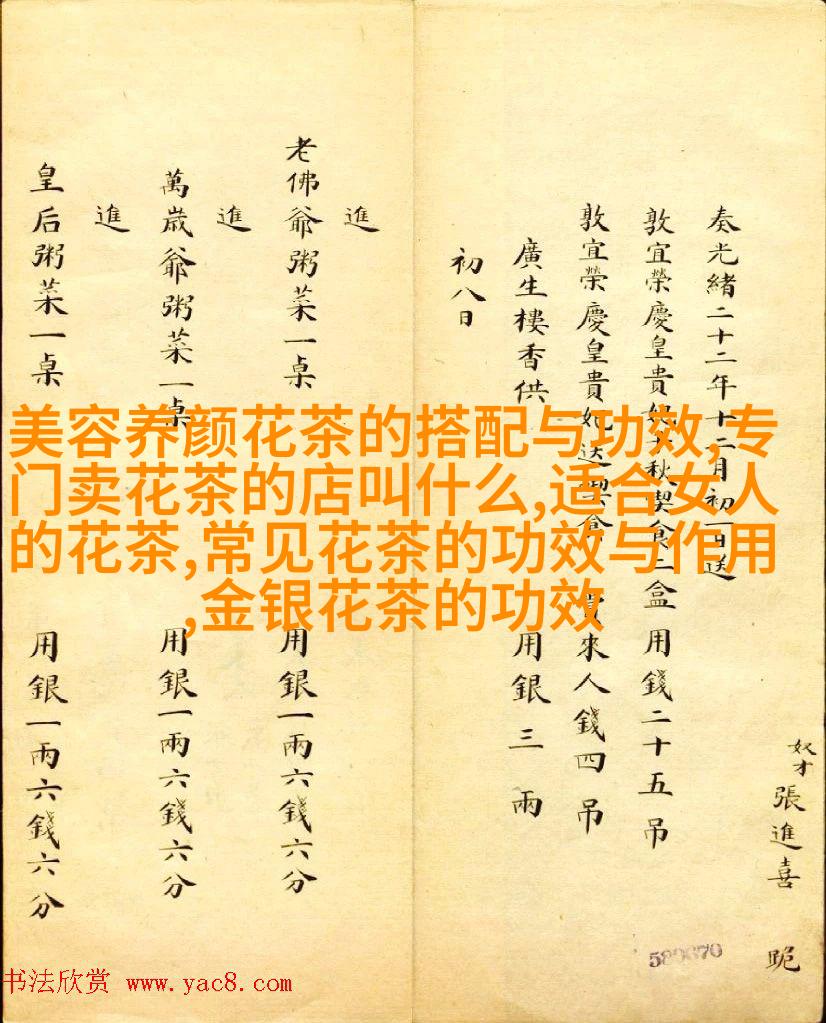 奴才張進喜 跪
奏光緒二十二年十二月初一日送
敦宜榮慶皇貴妃 喫食二盒 用錢二十五吊
敦宜榮慶皇貴妃送喫食 賞來人錢四吊
廣生樓香供 用銀三兩
初八日
進
老佛爺粥菜一桌 用銀一兩六錢六分
進
萬歲爺粥菜一桌 用銀一兩六錢六分
進
皇后粥菜一桌 用銀一兩六錢六分
美容养颜花茶的搭配与功效,专
门卖花茶的店叫什么,适合女人
的花茶,常见花茶的功效与作用
,金银花茶的功效
书法欣赏 www.yac8.com